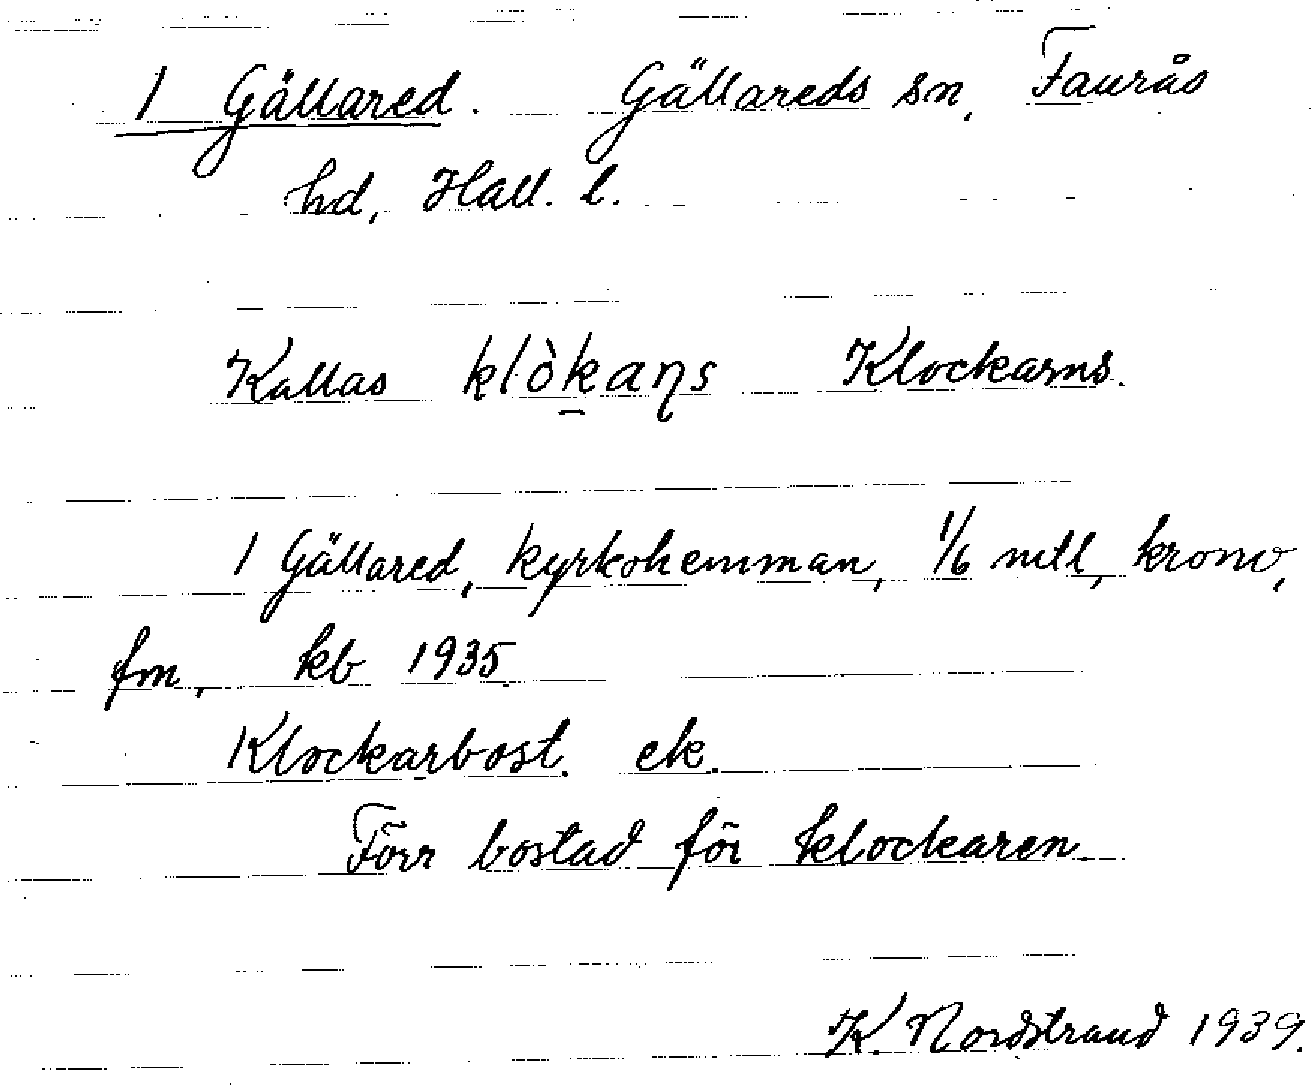 1 Gällared. Gällareds sn, Faurås
hd, Hall. l.
Kallas klòkaŋs Klockarns.
1 Gällared, kyrkohemman, 1/6 mtl, krono,
fm, kb 1935
Klockarbost. ek.
Förr bostad för klockaren
K. Nordstrand 1939.